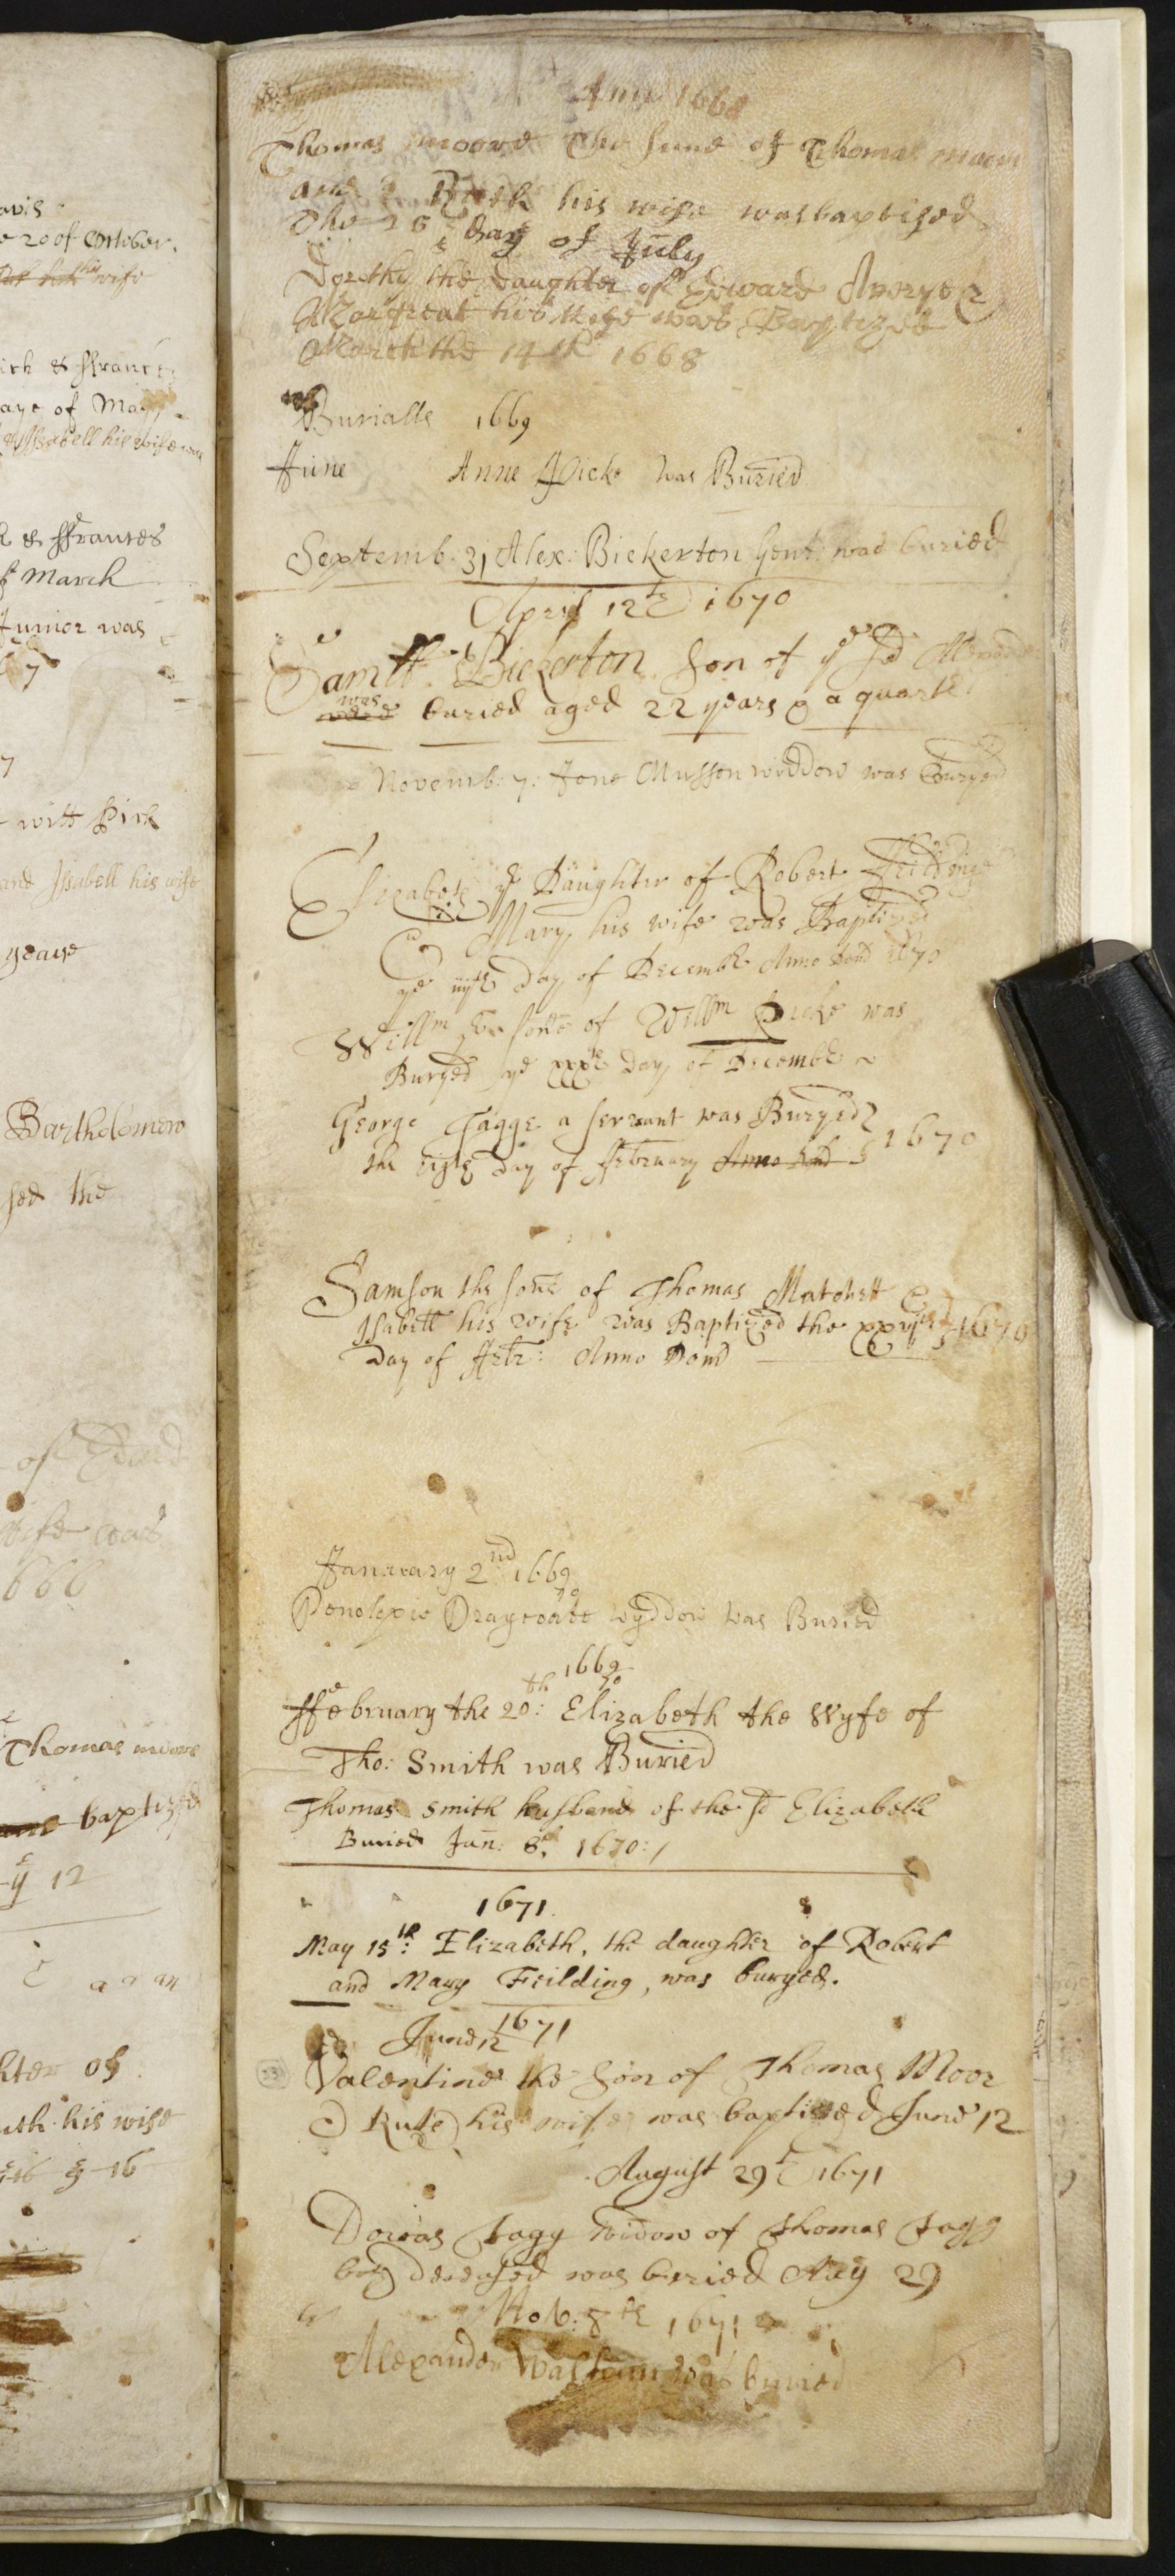 avis
e 20 of October.
wife
ich & ffrances
aye of May
Issabell his wife was
& ffrances
March
Junior was
7
7
will Pick
and Issabell his wife
Bartholomew
sed the
of Edward
wife was
666
Thomas moore
baptized
ye 12
hter of
uth his wife
16
Anno 1668
Thomas moore the sune of Thomas moore
and Ruth his wife was baptised
The 26 day of July
Dorothy the daughter of Edward &
Margreat his wife was Baptized
March the 14th 1668
Burialls 1669
June Anne Picke was Buried
Septemb: 31 Alex: Bickerton Gent: was buried
April 12th 1670
Samll: Bickerton son of ye sd Alexande
was buried aged 22 years & a quarter
Novemb: 7: Jone Musson widdow was Buryed
Elizabeth ye Daughter of Robert Feildinge
& Mary his wife was Baptized
ye iiijth Day of Decembr Anno Dom 1670
Willm the sonne of Willm Picke was
Buryed ye xxxth Day of Decembr
George Tagge a servant was Buryed
the Day of ffebruary Anno Dom 1670
Samson the sone of Thomas Matchett &
Isabell his wife was Baptized the xxvijth 1670
Day of Febr: Anno Dom
January 2nd 1669
70
Penelopie Draycoate wyddow was Buried
1669
70
ffebruary the 20th: Elizabeth the Wyfe of
Tho: Smith was Buried
Thomas Smith husband of the sd Elizabeth
Buried Jan: 8. 1670:/
1671.
May 15th: Elizabeth, the daughter of Robert
and Mary Feilding, was buryed.
June 12 1671
Valentine the son of Thomas Moor
& Ruth his wife was baptized June 12
August 29th 1671
Dorcas Tagg widow of Thomas Tagg
deceased was buried Aug 29
Nob: 8th 1671
Alexander was buried